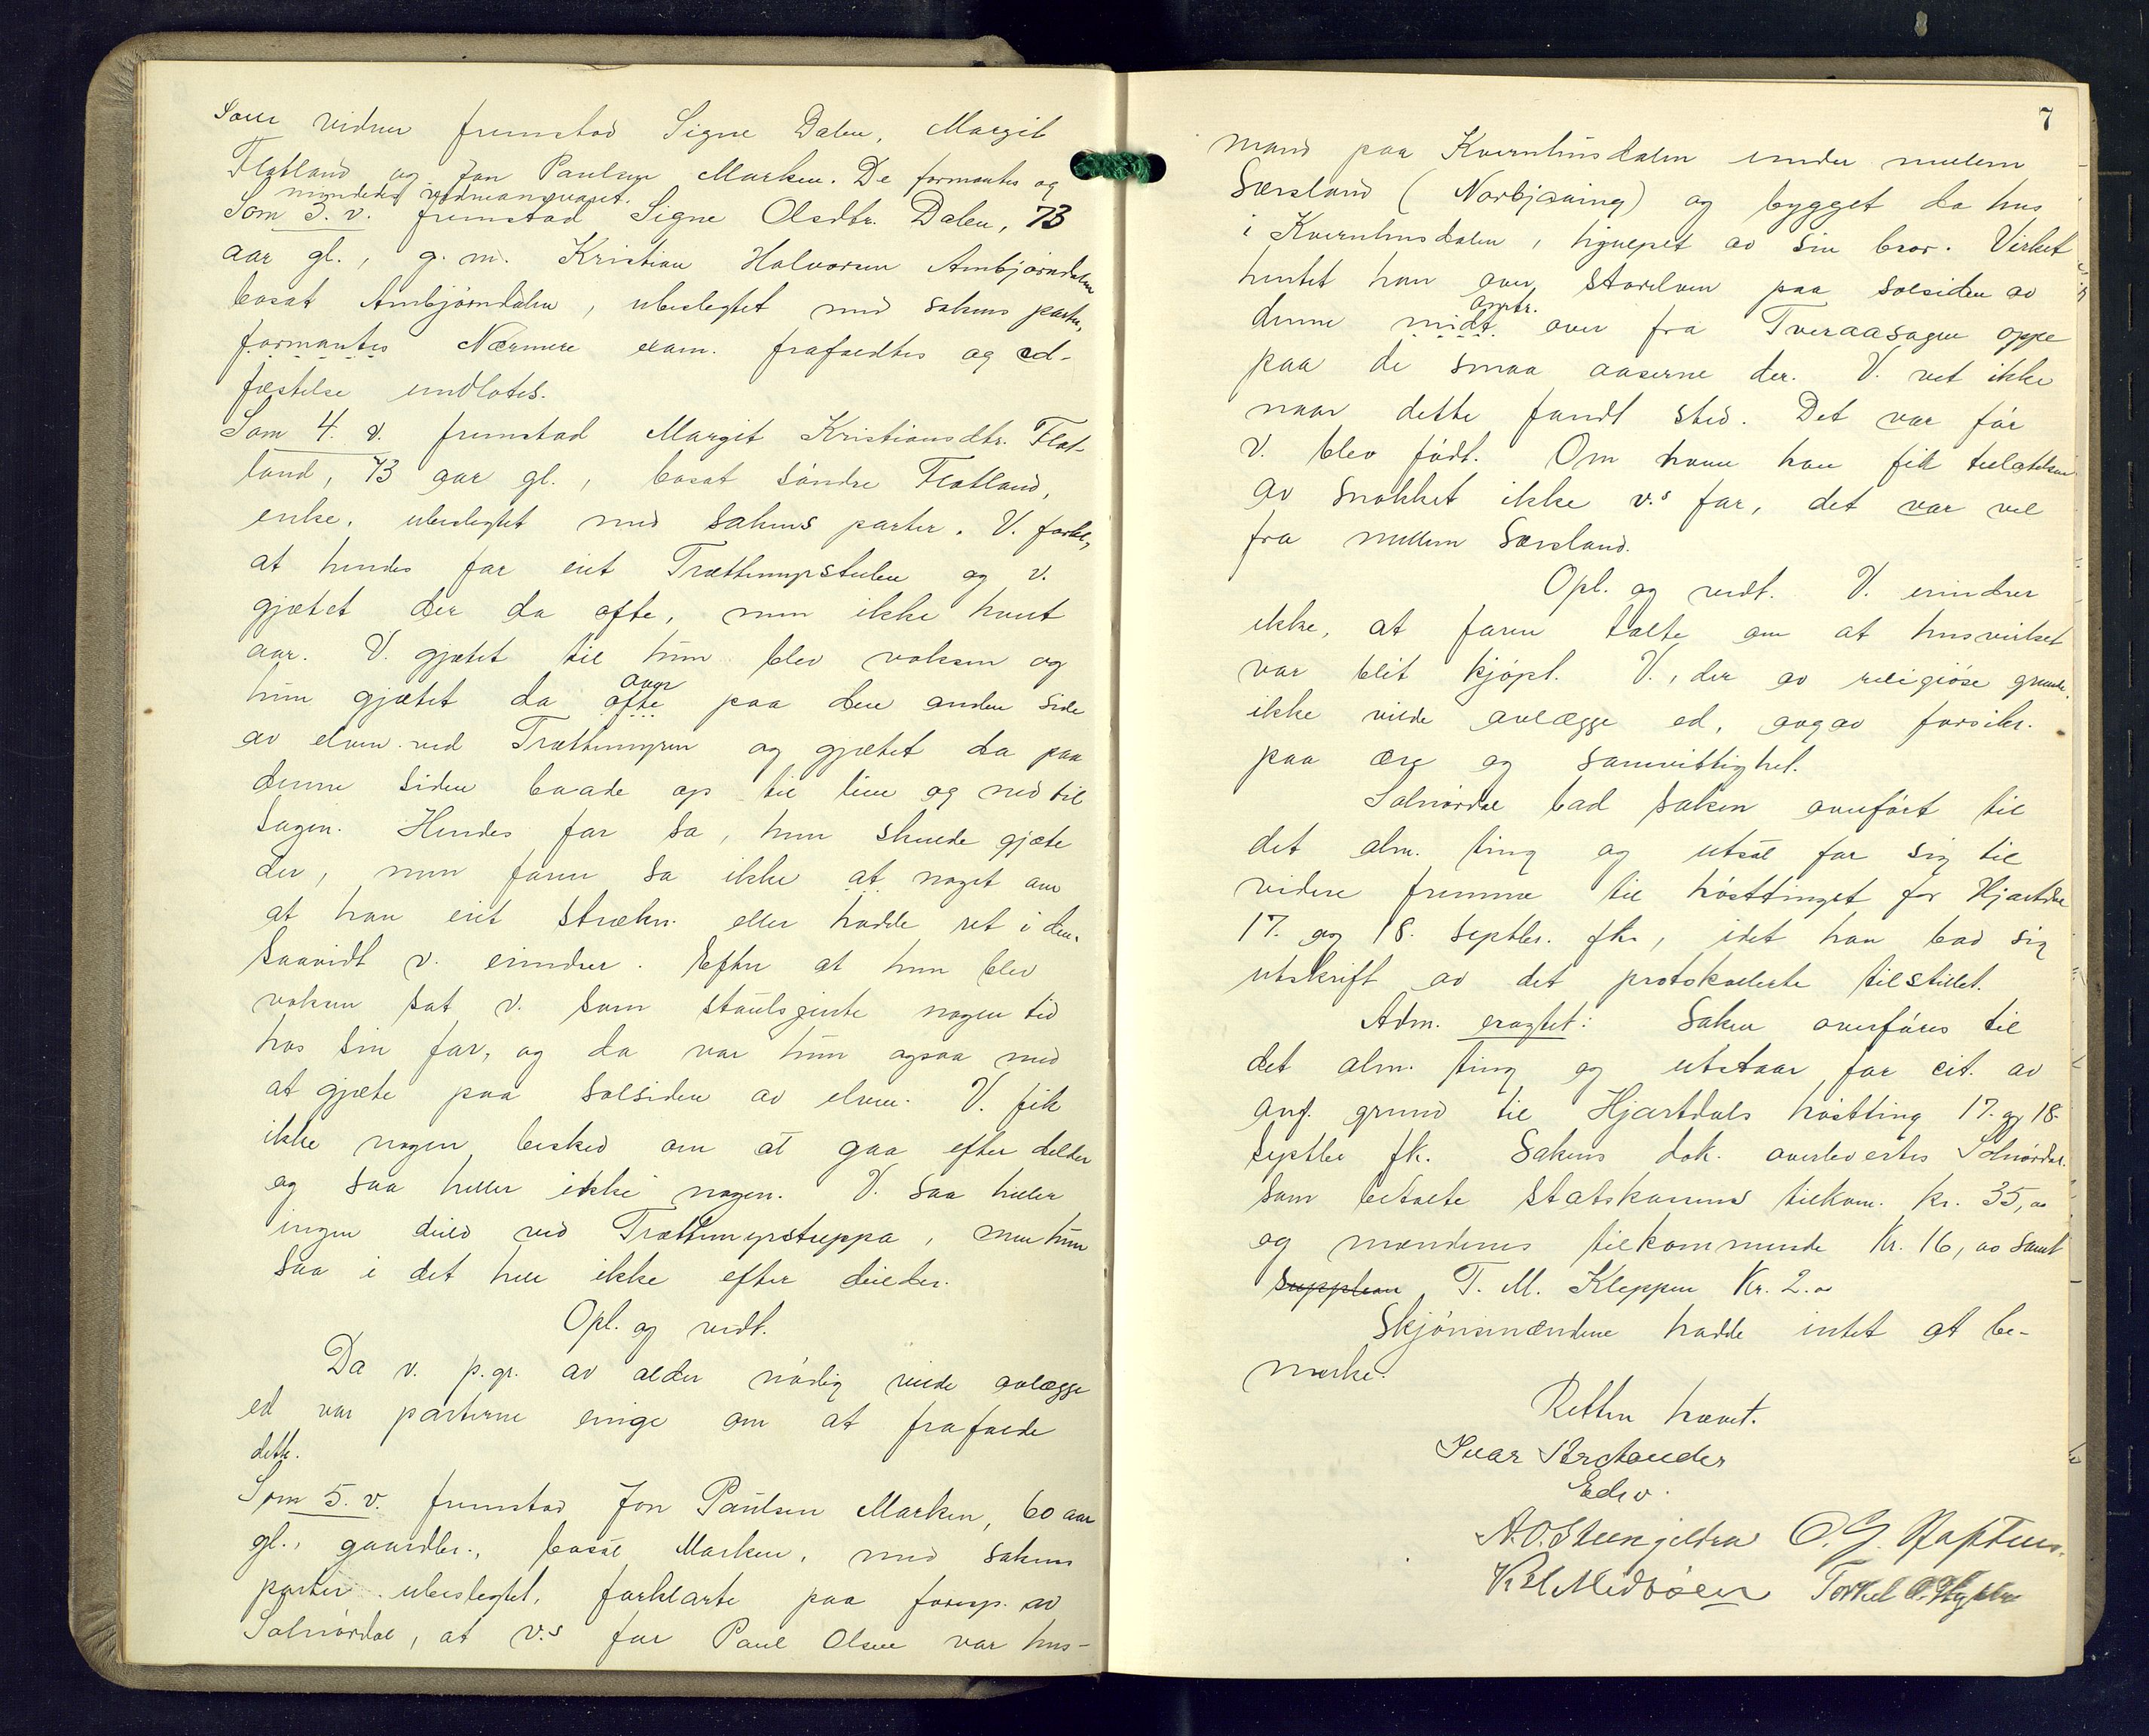 Som vidner fremstod Signe Dalen, Margit
Flatland og Jon Paulsen Marken. De formantes og
mindedes vidneansvaret.
Som 3. v. fremstod Signe Olsdtr. Dalen, 73
aar gl., g. m. Kristian Halvorsen Ambjørndalen
bosat Ambjørndalen, ubeslegtet med sakens parter,
formantes Nærmere exam. frafaldtes og ed-
fæstelse undlates.
Som 4. v. fremstod Margit Kristiansdtr. Flat-
land, 73 aar gl., bosat søndre Flatland,
enke, ubeslegtet med sakens parter. V. forkl.,
at hendes far eiet Trættemyrstulen og v.
gjætet der da ofte, men ikke hvert
aar. V. gjætet til hun blev voksen og
hun gjætet da ofte over paa den anden side
av elven ved Trættemyren og gjætet da paa
denne siden baade op til lien og ned til
sagen. Hendes far sa, hun skulde gjæte
der, men faren sa ikke at noget om
at han eiet strækn. eller hadde ret i den,
saavidt v. erindrer. Efter at hun blev
voksen sat v. som støulsjente nogen tid
hos sin far, og da var hun ogsaa med
at gjæte paa solsiden av elven. V. fik
ikke nogen besked om at gaa efter delder
og saa heller ikke nogen. V. saa heller
ingen deild ved Trættemyrstuppa, men hun
saa i det hele ikke efter deilder.
Opl. og vedt.
Da v. p. gr. av alder nødig vilde avlægge
ed var parterne enige om at frafalde
dette.
Som 5. v. fremstod Jon Paulsen Marken, 60 aar
gl., gaardbr., bosat Marken, med sakens
parter ubeslegtet, forklarte paa foresp. av
Solnørdal, at v.s far Paul Olsen var hus-
7
mand paa Kvernhusdalen under mellem
Særsland (Norbjønning) og bygget da hus
i Kvernhusdalen, hjulpet av sin bror. Virket
hentet han over storelven paa solsiden av
denne midt omtr. over fra Tveraasagen oppe
paa de smaa aaserne der. V. vet ikke
naar dette fandt sted. Det var før
v. blev født. Om hvem han fik tilladelsen
av snakket ikke v.s far, det var vel
fra mellem Særsland.
Opl. og vedt. V. erindrer
ikke, at faren talte om at husvirket
var blit kjøpt. V., der av religiøse grunde
ikke vilde avlægge ed, avgav forsikr.
paa ære og samvittighet.
Solnørdal bad saken overført til
det alm. ting og utsat for sig til
videre fremme til høsttinget for Hjartdal
17. og 18. septbr. fk., idet han bad sig
utskrift av det protokollerte tilstillet.
Adm. eragtet: Saken overføres til
det alm. ting og utstaar for cit. av
anf. grund til Hjartdals høstting 17. og 18.
septbr fk. Sakens dok. overlevertes Solnørdal.
som betalte statskassens tilkom. kr. 35,00
og mændenes tilkommende Kr. 16,00 samt
supplean T. M. Kleppen Kr. 2.00
Skjønsmændene hadde intet at be-
merke.
Retten hævet.
Ivar
Edsv.
A. O. Steengeldra O. G.
K. H. Midbøen Torkel